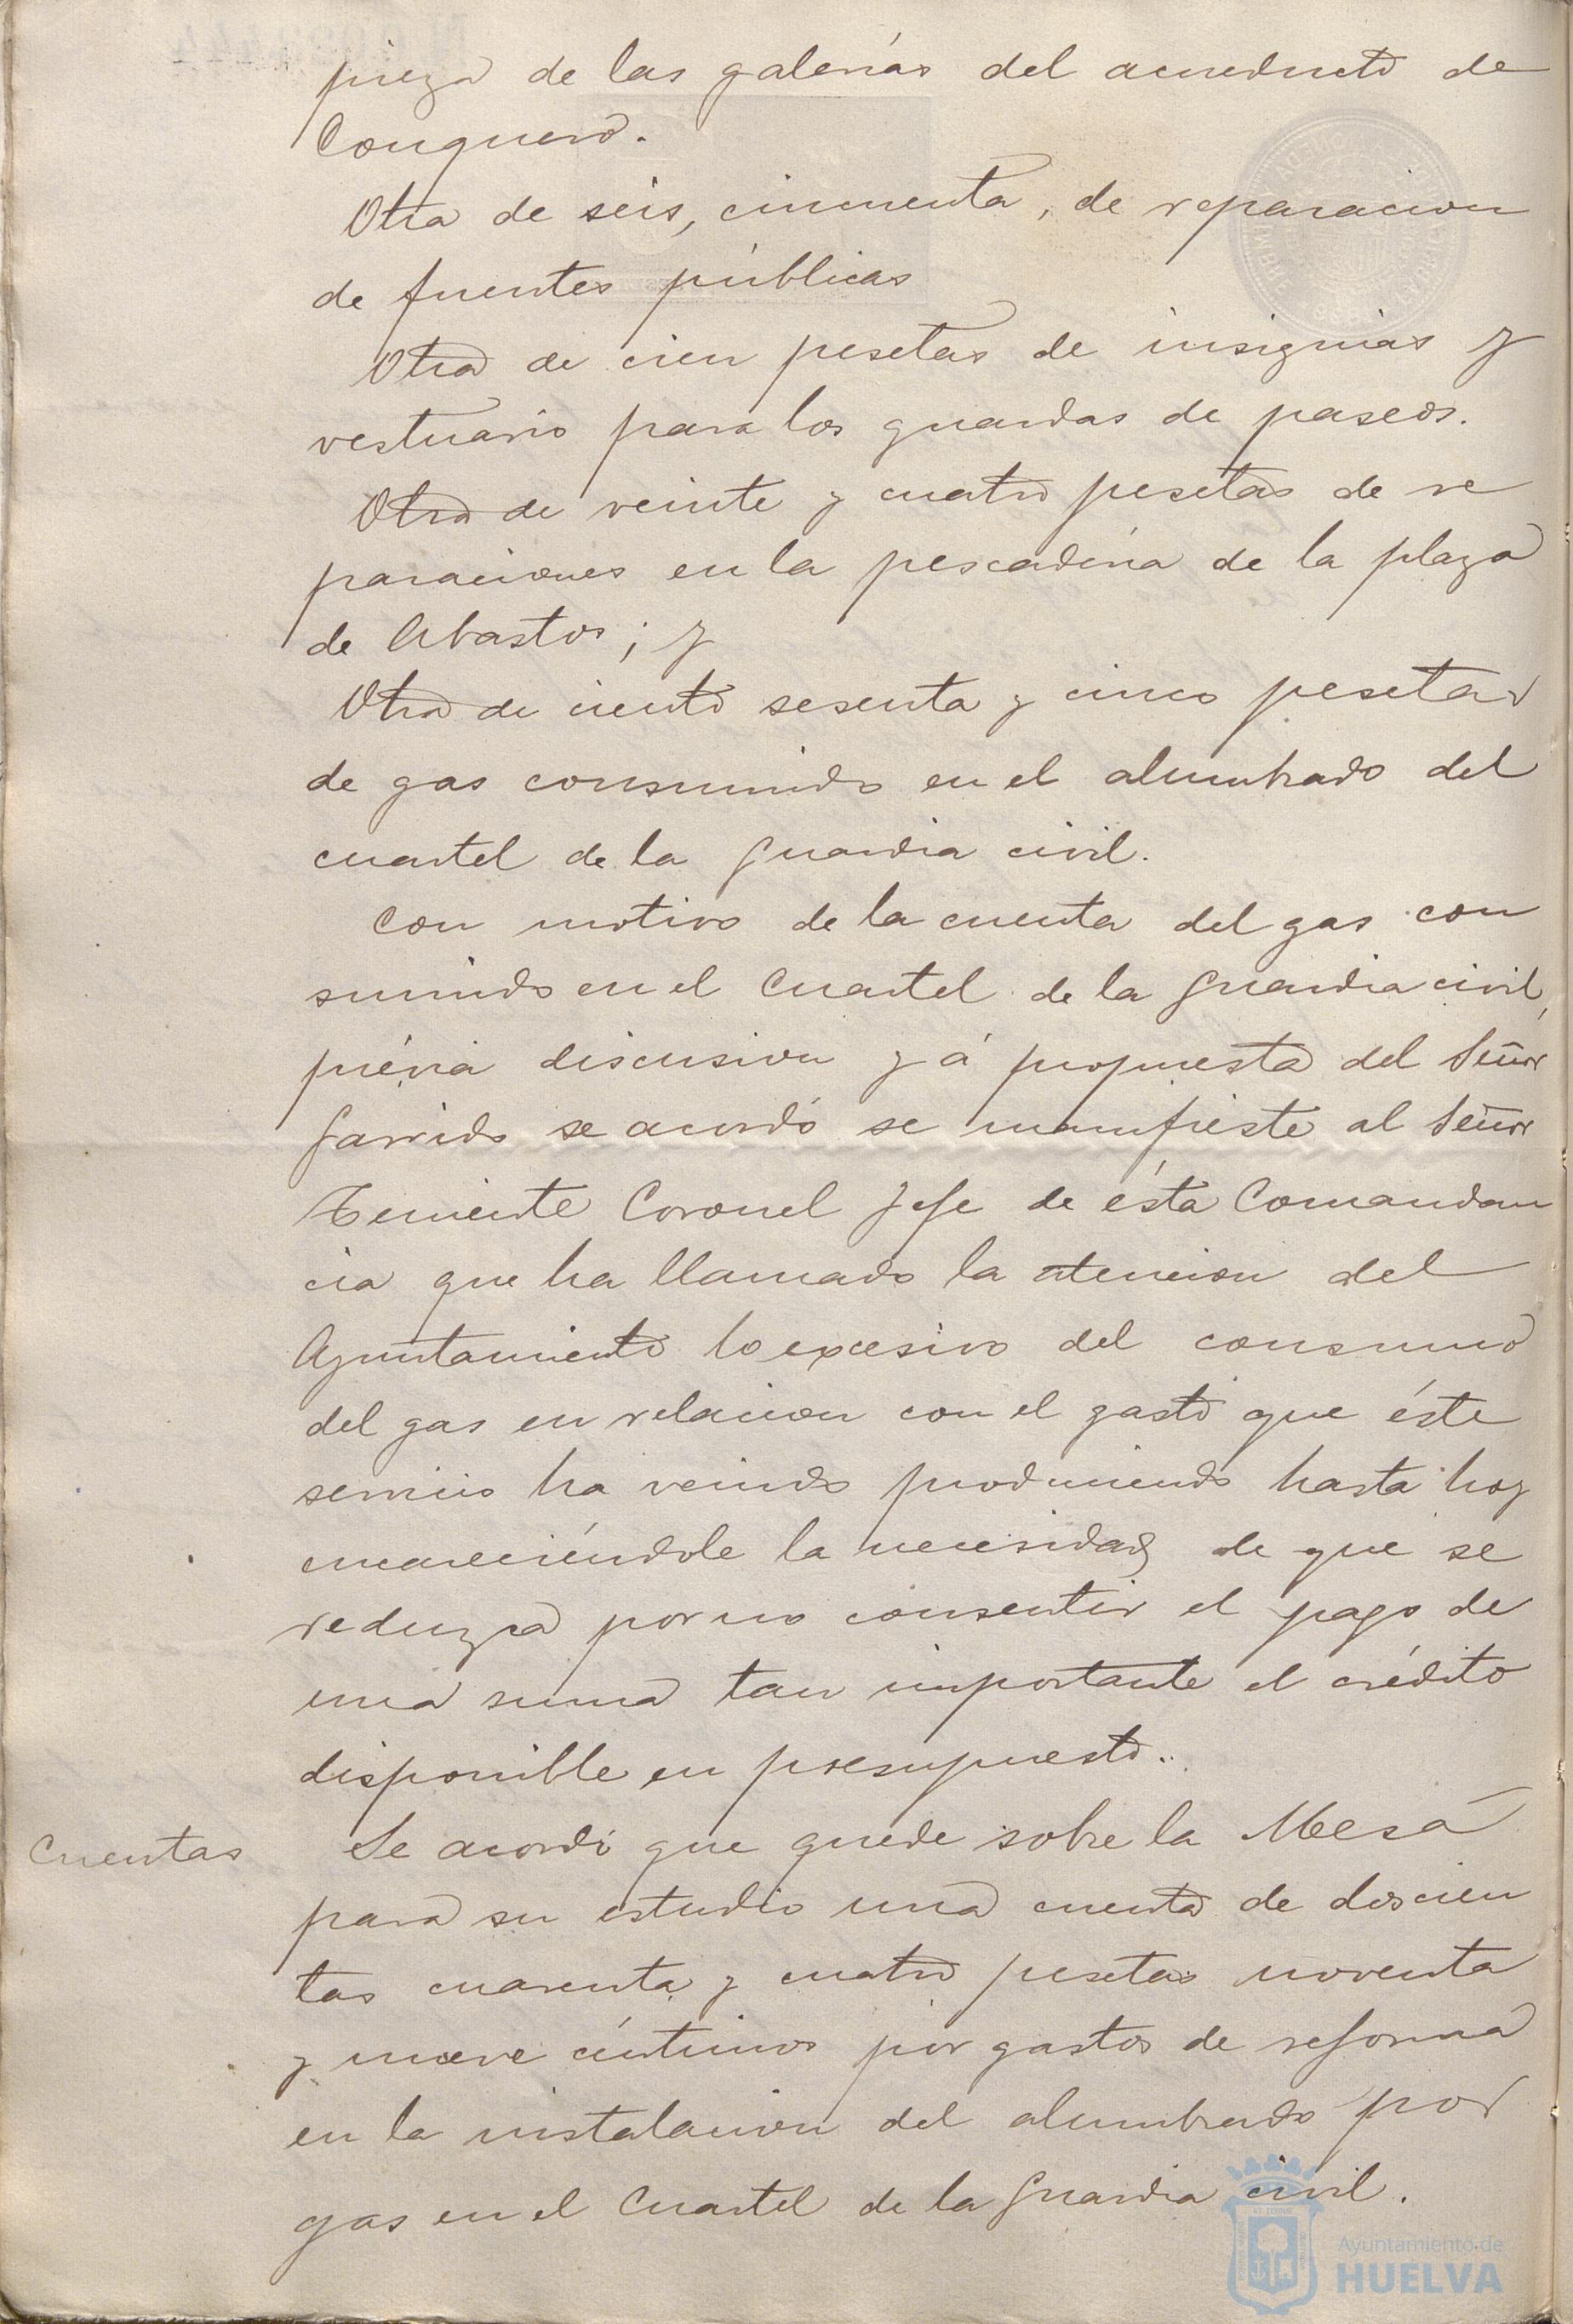 pieza de las galerías del acueducto de
Conquero.
Otra de seis, cincuenta, de reparacion
de fuentes públicas
Otra de cien pesetas de insignias y
vestuario para los guardas de paseos.
Otra de veinte y cuatro pesetas de re
paraciones en la pescadería de la plaza
de Abastos; y
Otra de ciento sesenta y cinco pesetas
de gas consumido en el alumbrado del
cuartel de la Guardia civil.
Con motivo de la cuenta del gas con
sumido en el Cuartel de la Guardia civil,
prévia discusion y á propuesta del Señor
Garrido se acordó se manifieste al Señor
Teniente Coronel Jefe de ésta Comandan
cia que ha llamado la atencion del
Ayuntamiento lo excesivo del consumo
del gas en relacion con el gasto que éste
servicio ha venido produciendo hasta hoy
encareciéndole la necesidad de que se
reduzca por no consentir el pago de
una suma tan importante el crédito
disponible en presupuesto.
Cuentas
Se acordó que quede sobre la Mesa
para su estudio una cuenta de doscien
tas cuarenta y cuatro pesetas noventa
y nueve céntimos por gastos de reforma
en la instalacion del alumbrado por
gas en el Cuartel de la Guardia civil.
Ayuntamiento de
HUELVA